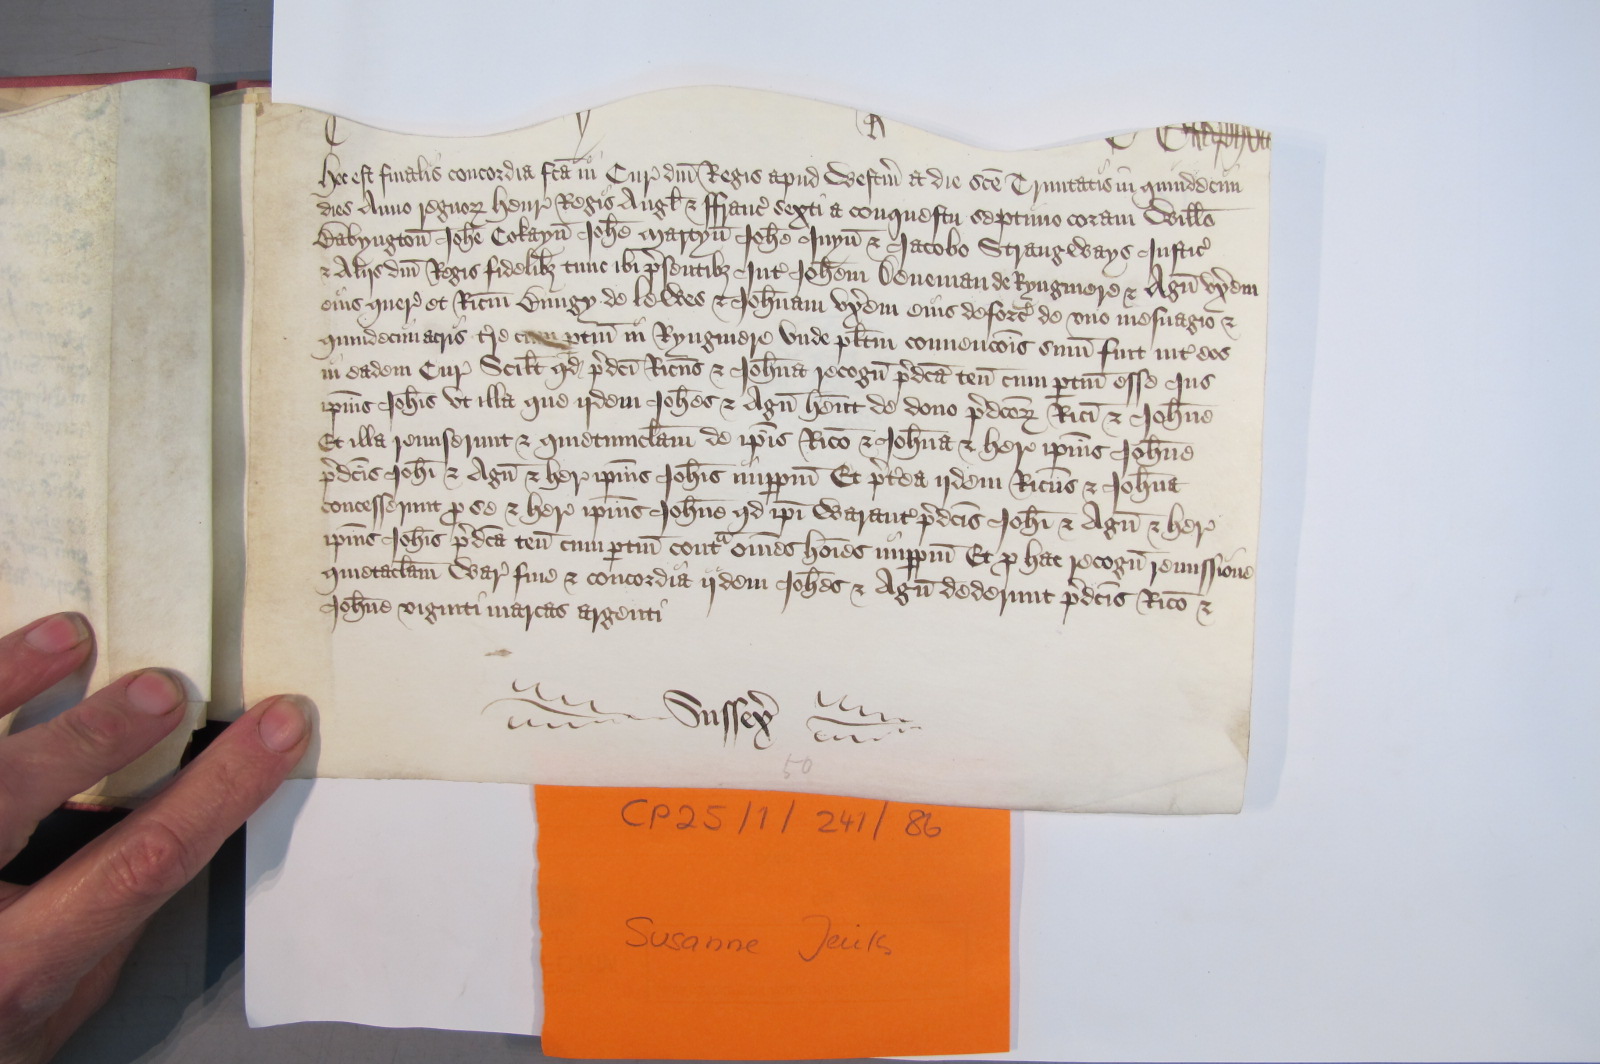 Hec est finalis concordia fc̄a in Cur̛ dn̄i Regis apud Westm̄ A die Sc̄e Trinitatis in quindecim
dies Anno regnoꝝ Henr̛ Regis Angl̛ & ffranc̛ sexti a conquestu septimo coram Will̄o
Babyngton̄ Joh̄e Cokayn̄ Joh̄e Martyn̄ Joh̄e Juyn̄ & Jacobo Strangways Justic̛
& Alijs dn̄i Regis fidelibꝫ tunc ibi p̛sentibꝫ Int̛ Joh̄em Deneman de Ryngmere & Agn̄ vx̛em
eius quer̛ et Ric̄m Bungy de Lewes & Joh̄nam vx̛em eius deforc̛ de vno mesuagio &
quindecim acris t̛re cum ptin̄ in Ryngmere Vnde pl̄itm conuenc̄ois sum̄ fuit int̛ eos
in eadem Cur̛ Scil̄t qd̛ p̛dc̄i Ric̄us & Joh̄na recogn̄ p̛dc̄a ten̄ cum ptin̄ esse Jus
ip̄ius Joh̄is Vt illa que ijdem Joh̄es & Agn̄ h̄ent de dono p̛dc̄oꝝ Ric̄i & Joh̄ne
Et illa remiserunt & quietumclam̄ de ip̄is Ric̄o & Joh̄na & her̛ ip̄ius Joh̄ne
p̛dc̄is Joh̄i & Agn̄ & her̛ ip̄ius Joh̄is imppm̄ Et p̛t̛ea ijdem Ric̄us & Joh̄na
concesserunt p se & her̛ ip̄ius Joh̄ne qd̛ ip̄i Warant̛ p̛dc̄is Joh̄i & Agn̄ & her̛
ip̄ius Joh̄is p̛dc̄a ten̄ cum ptin̄ contᵃ om̄es ho̅ies imppm̄ Et p hac recogn̄ remissione
quietaclam̄ War̛ fine & concordia ijdem Joh̄es & Agn̄ dederunt p̛dc̄is Ric̄o &
Joh̄ne viginti marcas argenti
Sussex̛
50
CP25/1/241/86
Susanne Jenks